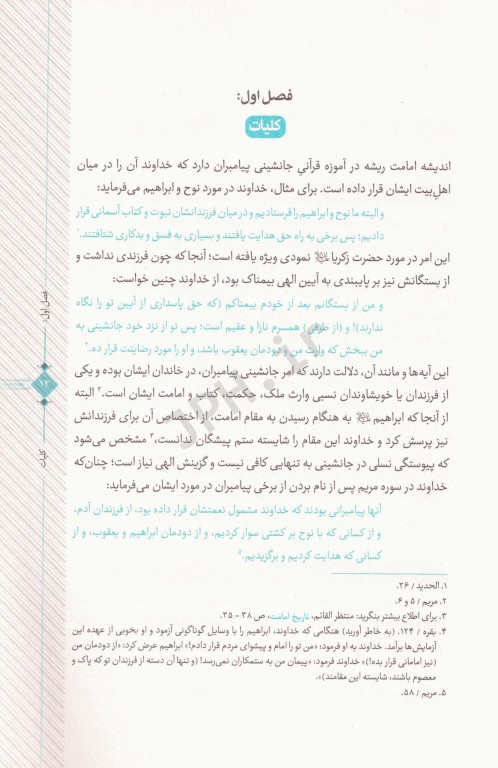 فصل اول:
کلیات
اندیشه امامت ریشه در آموزه قرآنیِ جانشینی پیامبران دارد که خداوند آن را در میان
اهل‌بیت ایشان قرار داده است. برای مثال، خداوند در مورد نوح و ابراهیم می‌فرماید:
و البته ما نوح و ابراهیم را فرستادیم و در میان فرزندانشان نبوت و کتاب آسمانی قرار
دادیم؛ پس برخی به راه حق هدایت یافتند و بسیاری به فسق و بدکاری شتافتند.۱
این امر در مورد حضرت زکریا نمودی ویژه یافته است؛ آنجا که چون فرزندی نداشت و
از بستگانش نیز بر پایبندی به آیین الهی بیمناک بود، از خداوند چنین خواست:
و من از بستگانم بعد از خودم بیمناکم (که حق پاسداری از آیین تو را نگاه
ندارند)! و (از طرفی) همسرم نازا و عقیم است؛ پس تو از نزد خود جانشینی به
من ببخش که وارث من و دودمان یعقوب باشد، و او را مورد رضایتت قرار ده.۲
این آیه‌ها و مانند آن، دلالت دارند که امر جانشینی پیامبران، در خاندان ایشان بوده و یکی
از فرزندان یا خویشاوندان نسبی وارث ملک، حکمت، کتاب و امامت ایشان است.۳ البته
از آنجا که ابراهیم به هنگام رسیدن به مقام امامت، از اختصاصِ آن برای فرزندانش
نیز پرسش کرد و خداوند این مقام را شایسته ستم پیشگان ندانست،۴ مشخص می‌شود
که پیوستگی نسلی در جانشینی به تنهایی کافی نیست و گزینش الهی نیاز است؛ چنان‌که
خداوند در سوره مریم پس از نام بردن از برخی پیامبران در مورد ایشان می‌فرماید:
آنها پیامبرانی بودند که خداوند مشمول نعمتشان قرار داده بود، از فرزندان آدم،
و از کسانی که با نوح بر کشتی سوار کردیم، و از دودمان ابراهیم و یعقوب، و از
کسانی که هدایت کردیم و برگزیدیم.۵
۱. الحدید / ۲۶.
۲. مریم / ۵ و ۶.
۳. برای اطلاع بیشتر بنگرید: منتظر القائم، تاریخ امامت، ص ۳۸ - ۳۵.
۴. بقره / ۱۲۴. (به خاطر آورید) هنگامی که خداوند، ابراهیم را با وسایل گوناگونی آزمود و او بخوبی از عهده این
آزمایش‌ها برآمد. خداوند به او فرمود: «من تو را امام و پیشوای مردم قرار دادم!» ابراهیم عرض کرد: «از دودمان من
(نیز امامانی قرار بده!)» خداوند فرمود: «پیمان من به ستمکاران نمی‌رسد! (و تنها آن دسته از فرزندان تو که پاک و
معصوم باشند، شایسته این مقامند)».
۵. مریم / ۵۸.
فصل اول:
۱۳
کلیات
JPH.ir